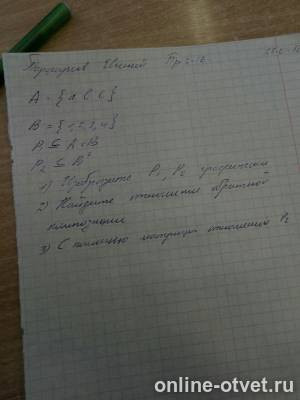 Евгений Пр2-16
A = {a, b, c}
B = {1, 2, 3, 4}
P₁ ⊆ A×B
P₂ ⊆ B²
1) Изобразите P₁, P₂ графически
2) Найдите отношение обратной
композиции
3) С помощью матрицы отношений P₂
online-otvet.ru